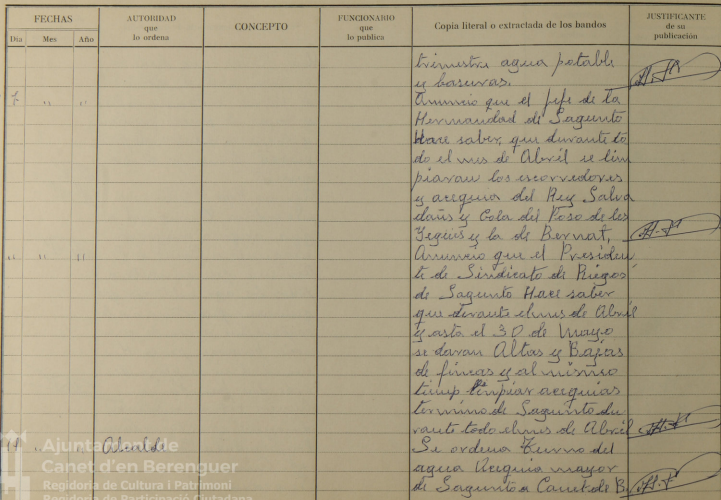 FECHAS
Día Mes Año
AUTORIDAD
que
lo ordena
CONCEPTO
FUNCIONARIO
que
lo publica
Copia literal o extractada de los bandos
JUSTIFICANTE
de su
publicación
trimestre agua potable
y basuras.
7 " " Anuncio que el jefe de la
Hermandad de Sagunto
Hace saber, que durante to
do el mes de Abril se lim
piaran los escorredores
y acequia del Rey Salva
dañs y Cola del Foso de les
Yegües y la de Bernat,
" " " Anuncio que el Presiden
te de Sindicato de Riegos
de Sagunto Hace saber
que durante el mes de Abril
y asta el 30 de Mayo
se daran Altas y Bajas
de fincas y al mismo
timp limpiar acequias
termino de Sagunto du
rante todo el mes de Abril
" " Alcalde Se ordena Turno del
agua Acequia mayor
de Sagunto a Canet de B.
Ajuntament de
Canet d'en Berenguer
Regidoria de Cultura i Patrimoni
Regidoria de Participació Ciutadana